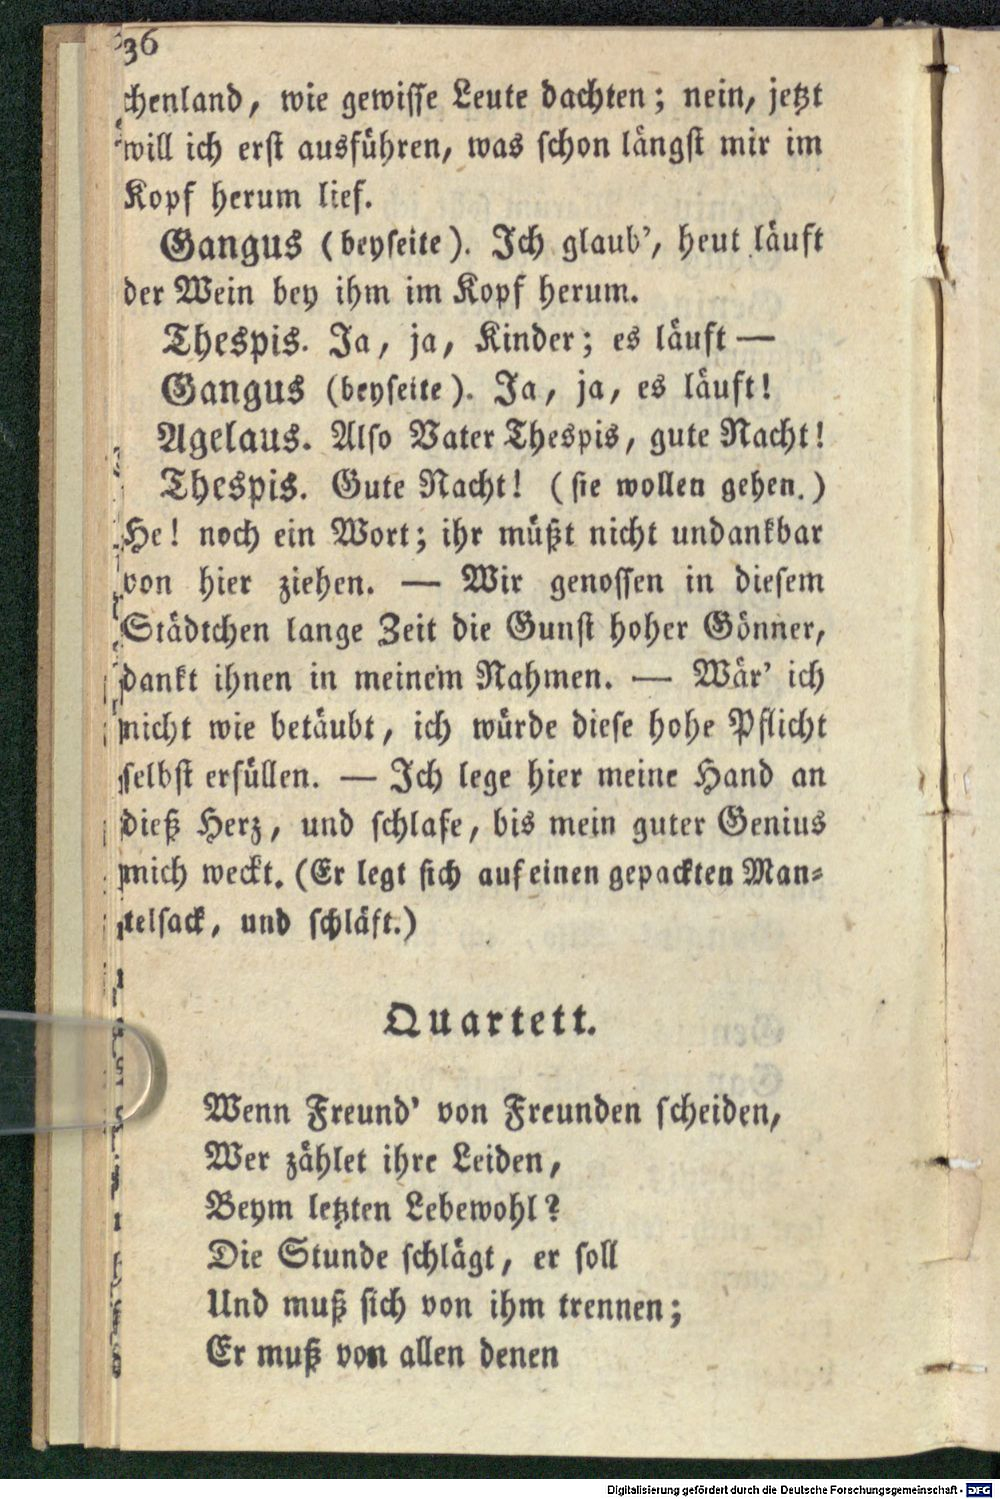 36
chenland, wie gewisse Leute dachten; nein, jetzt
will ich erst ausführen, was schon längst mir im
Kopf herum lief.
Gangus (beyseite). Ich glaub', heut läuft
der Wein bey ihm im Kopf herum.
Thespis. Ja, ja, Kinder; es läuft —
Gangus (beyseite). Ja, ja, es läuft!
Agelaus. Also Vater Thespis, gute Nacht!
Thespis. Gute Nacht! (sie wollen gehen.)
He! noch ein Wort; ihr müßt nicht undankbar
von hier ziehen. — Wir genossen in diesem
Städtchen lange Zeit die Gunst hoher Gönner,
dankt ihnen in meinem Nahmen. — Wär' ich
nicht wie betäubt, ich würde diese hohe Pflicht
selbst erfüllen. — Ich lege hier meine Hand an
dieß Herz, und schlafe, bis mein guter Genius
mich weckt. (Er legt sich auf einen gepackten Man-
telsack, und schläft.)
Quartett.
Wenn Freund' von Freunden scheiden,
Wer zählet ihre Leiden,
Beym letzten Lebewohl?
Die Stunde schlägt, er soll
Und muß sich von ihm trennen;
Er muß von allen denen
Digitalisierung gefördert durch die Deutsche Forschungsgemeinschaft - DFG